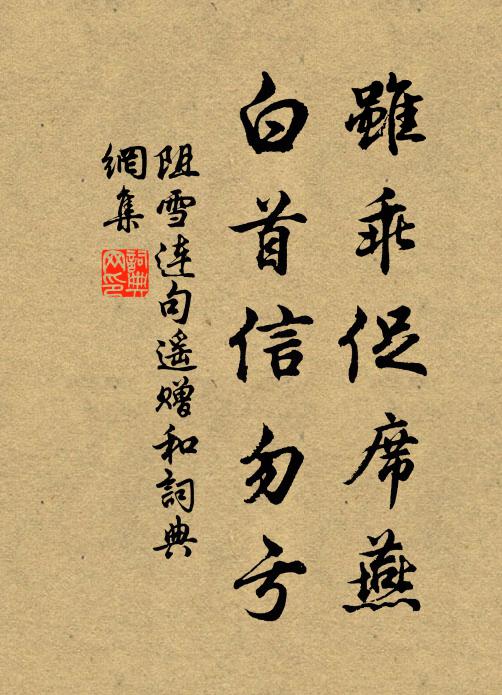 雖乖促席燕
白首信勿亏
阻雪連句遥贈和詞典
網集
詞典网印